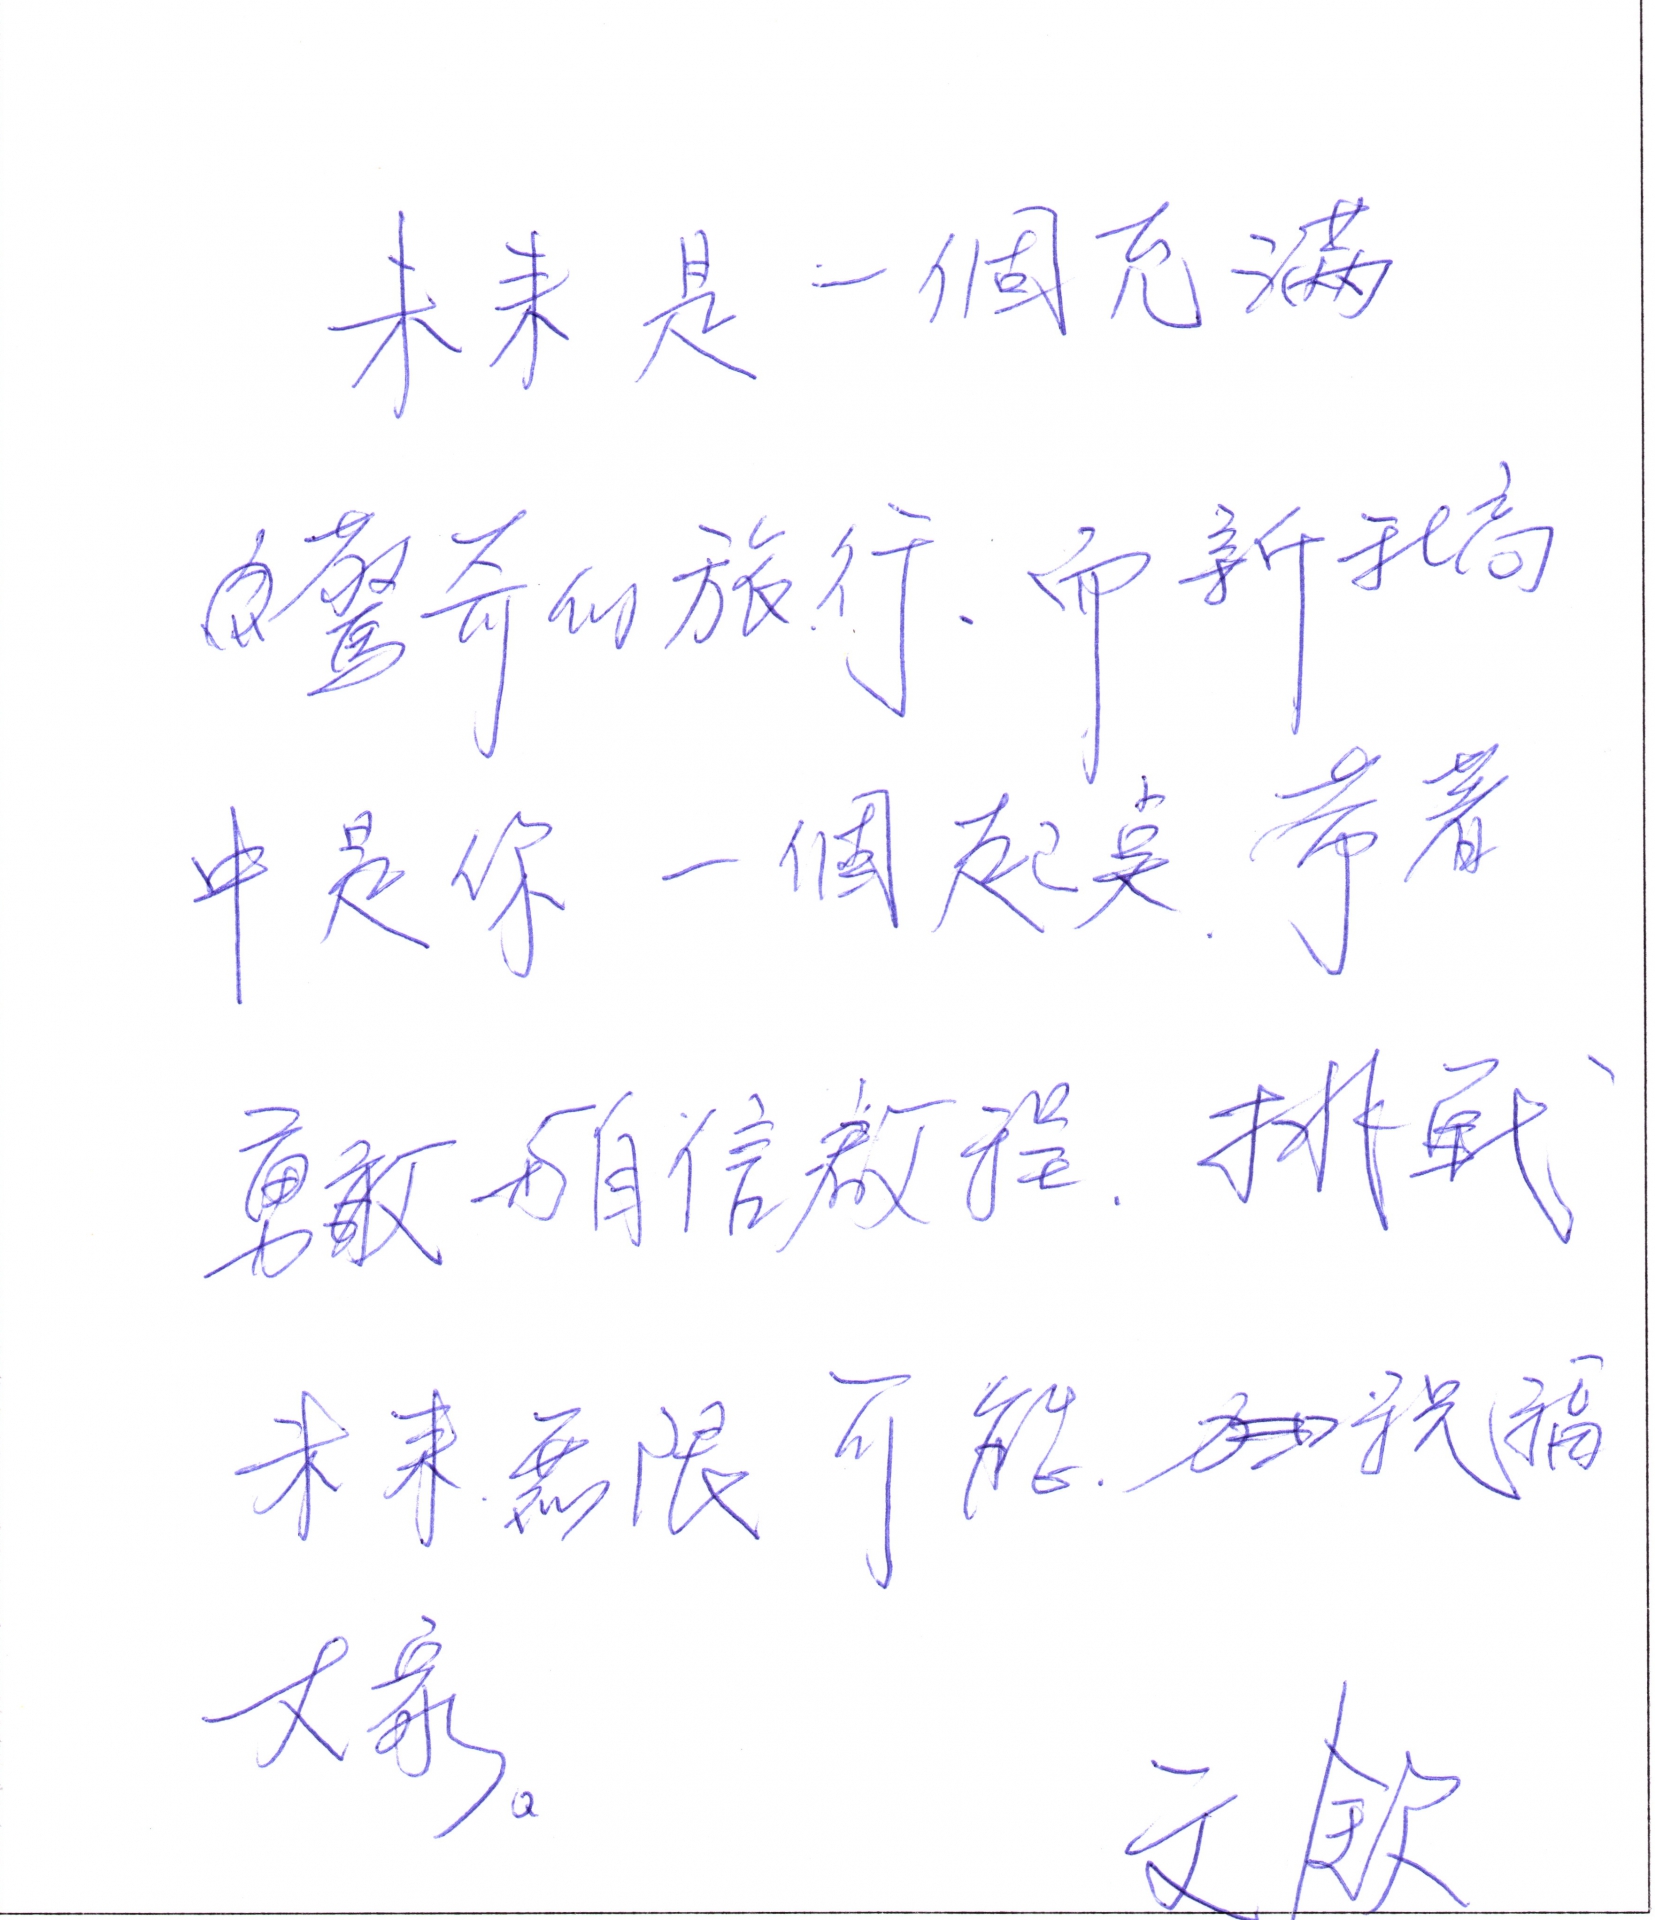 未來是一個充滿
驚奇的旅行、而新北高
中是你一個起點.帶著
勇敢与自信啟程.挑戰
未來無限可能.祝福
大家。
文欽